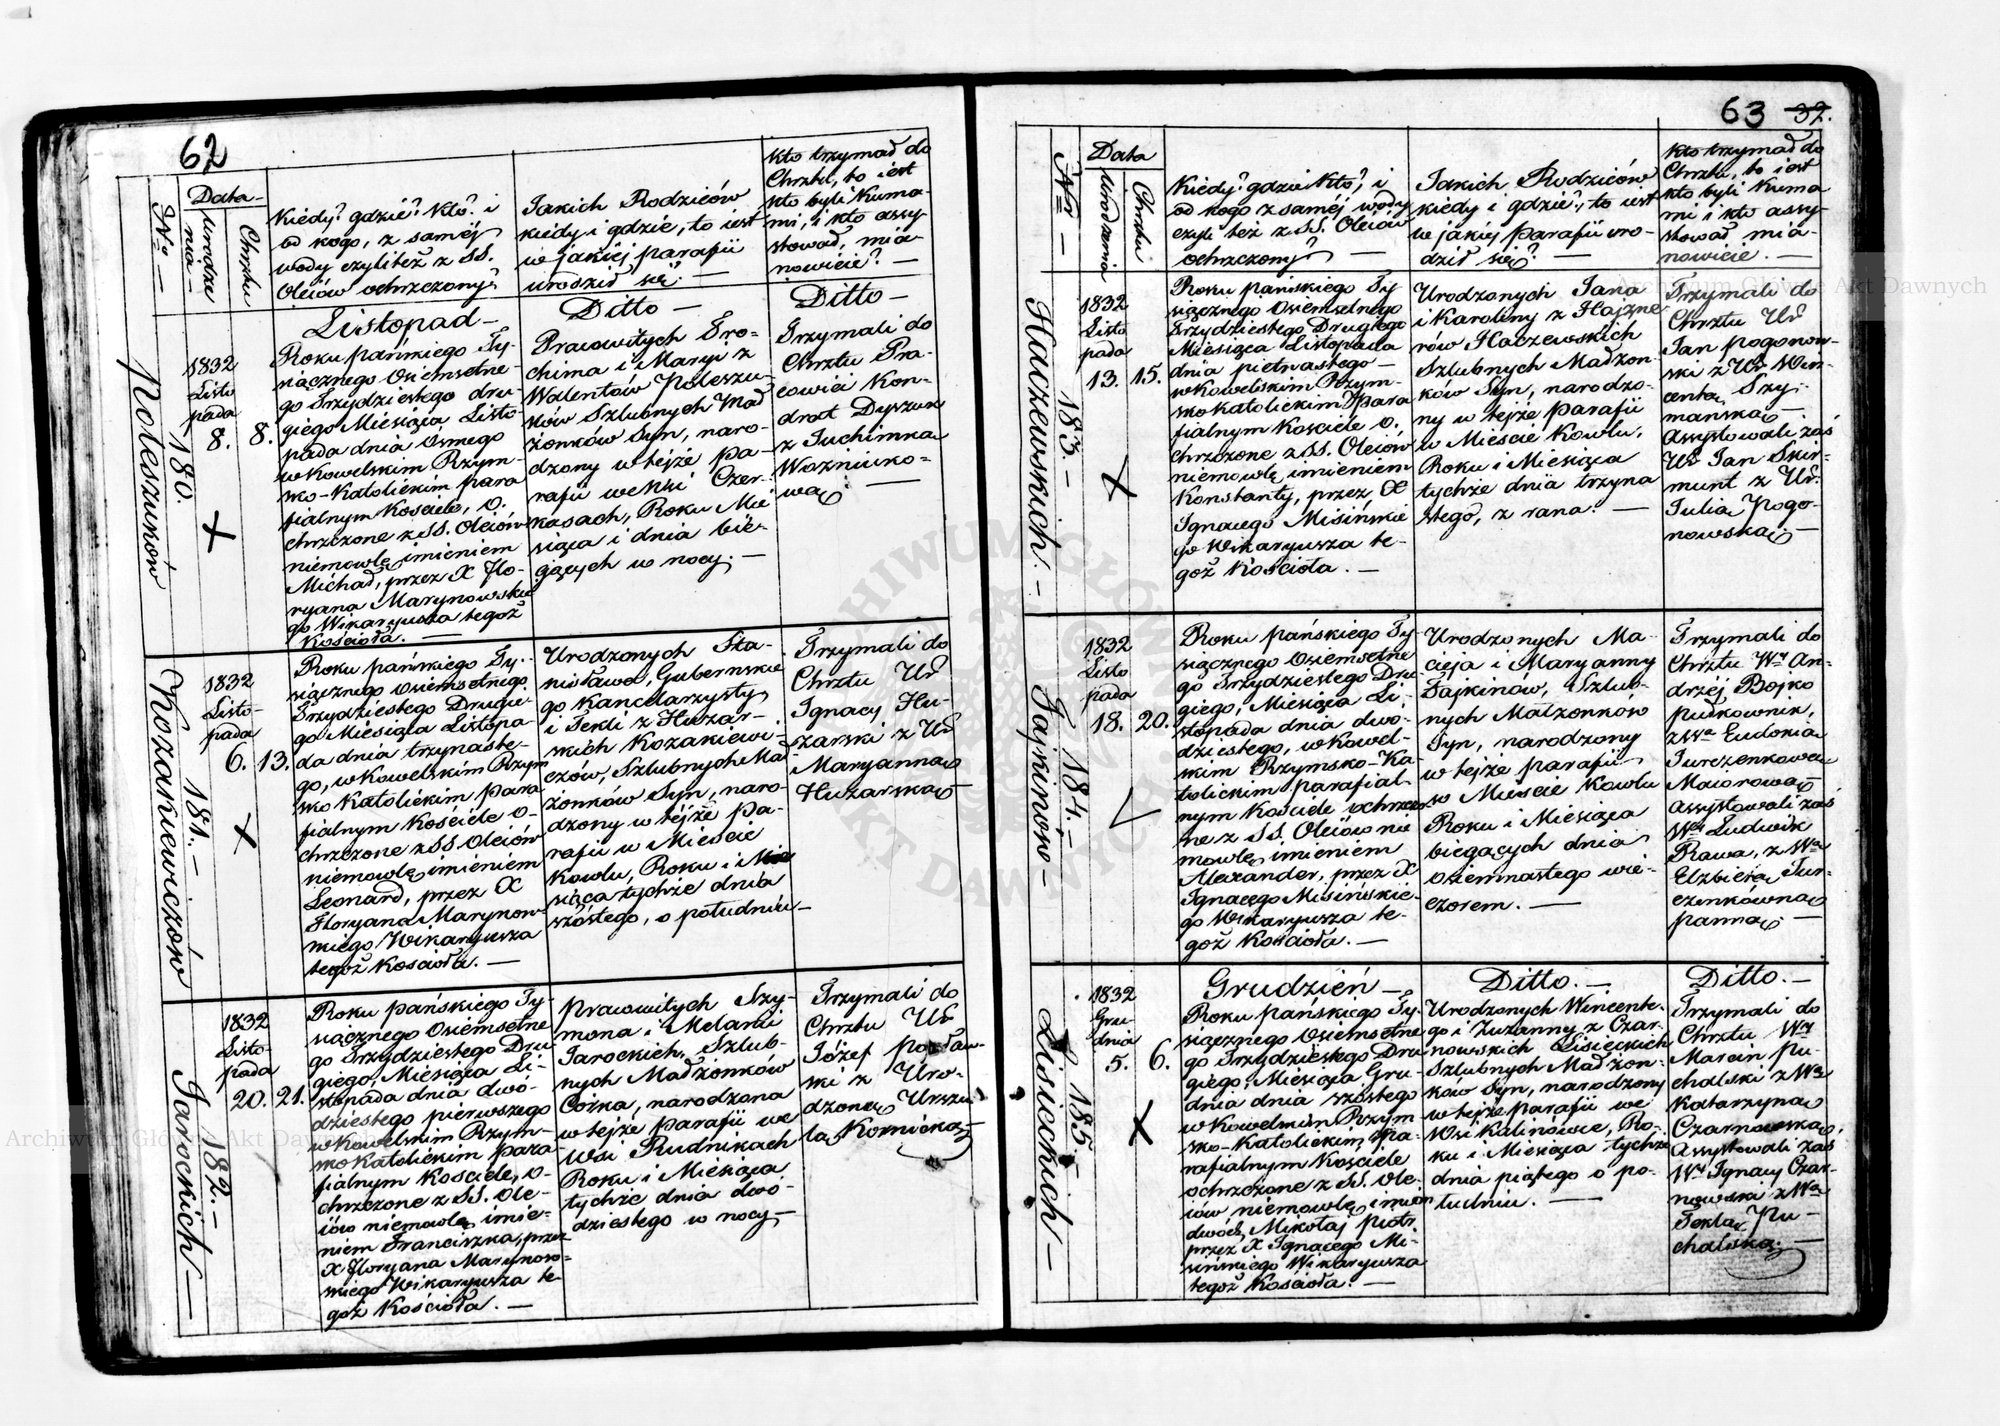 62
Nro —
Data —
Urodze
nia —
Chrztu
Kiedy? gdzie? Kto? i
od kogo, z saméj
wody czyli też z SS.
Oleiów ochrzczony?
Jakich Rodziców
kiedy i gdzie, to iest
w jakiéj parafii
urodził się? —
Kto trzymał do
Chrztu, to iest
kto byli Kuma-
mi, i kto assy-
stował, mia-
nowicie? —
Poleszuków
180.
1832
Listo
pada
8. 8.
Listopad —
Roku pańskiego Ty-
siącznego Osiemsetne-
go Trzydziestego dru-
giego Miesiąca Listo-
pada dnia ósmego
w Kowelskim Rzym-
sko-Katolickim para
fialnym Kościele, o-
chrzczone z SS. Oleiów
niemowlę imieniem
Michał, przez X Flo-
ryana Marynowskie
go Wikaryusza tegoż
Kościoła. —
Ditto —
Pracowitych Tro-
chima i Maryi z
Walentów Poleszu-
ków Szlubnych Mał
żonków Syn, naro-
dzony w tejże pa-
rafii we Wsi Czer-
kasach, Roku Mie
siąca i dnia bie-
gących w nocy. —
Ditto —
Trzymali do
Chrztu Pra-
cowici Kon-
drat Dyszuk
z Juchimką
Wozniuko-
wą. —
Kozakiewiczów
181. —
1832
Listo-
pada
6. 13.
Roku pańskiego Ty-
siącznego Osiemsetnego
Trzydziestego Drugie-
go Miesiąca Listopa
da dnia trzynaste-
go, w Kowelskim Rzym
sko Katolickim para
fialnym Kościele o-
chrzczone z SS Oleiów
niemowlę imieniem
Leonard, przez X
Floryana Marynow-
skiego Wikaryusza
tegoż Kościoła. —
Urodzonych Sta-
nisława, Gubernskie
go Kancelarzysty
i Tekli z Huzar-
skich Kozakiewi-
czów, Szlubnych Mał
żonków Syn, naro-
dzony w téjże pa-
rafii w Mieście
Kowlu, Roku i Mie
siąca tychże dnia
szóstego, o południu —
Trzymali do
Chrztu Ur
Ignacy Hu-
zarski z Ur
Maryanną
Huzarską —
Jarockich —
182. —
1832
Listo-
pada
20. 21.
Roku pańskiego Ty-
siącznego Osiemsetne
go Trzydziestego Dru-
giego, Miesiąca Li-
stopada dnia dwó-
dziestego pierwszego
w Kowelskim Rzym-
sko Katolickim para
fialnym Kościele, o-
chrzczone z SS. Ole-
iów niemowlę imie-
niem Franciszka, przez
X Floryana Marynow-
skiego Wikaryusza te-
goż Kościoła. —
Pracowitych Szy-
mona i Melanii
Jarockich, Szlub-
nych Małżonków
Córka, narodzona
w tejże parafii we
Wsi Rudnikach
Roku i Miesiąca
tychże dnia dwó-
dziestego w nocy —
Trzymali do
Chrztu Ur
Józef
ski z Uro-
dzoną Urszu
lą Kornicką —
63 32.
Nro —
Data
Urodzenia
Chrztu
Kiedy? gdzie Kto? i
od kogo z saméj wody
czyli też z SS. Oleiów
ochrzczony? —
Jakich Rodziców
kiedy i gdzie?, to iest
w jakiéj parafii uro-
dził się? —
Kto trzymał do
Chrztu, to iest
kto byli Kuma
mi i kto assy-
stował mia-
nowicie. —
Haczewskich. —
183. —
1832
Listo
pada
13. 15.
Roku pańskiego Ty
siącznego Osiemsetnego
Trzydziestego Drugiego
Miesiąca Listopada
dnia piętnastego —
w Kowelskim Rzym-
sko Katolickim Para
fialnym Kościele o.
chrzczone z SS. Oleiów
niemowlę imieniem
Konstanty, przez X
Ignacego Misińskie
go Wikaryusza te-
goż Kościoła. —
Urodzonych Jana
i Karoliny z Hajzne-
rów Haczewskich
Szlubnych Małżon-
ków Syn, narodzo-
ny w tejże parafii
w Mieście Kowlu,
Roku i Miesiąca
tychże dnia trzyna
stego, z rana. —
Trzymali do
Chrztu Ur
Jan Pogonow-
ski z Ur Win-
centą Szy-
mańską —
Assystowali zaś
Ur Jan Skir-
munt z Ur.
Julią Pogo-
nowską —
Fajkinów —
184. —
1832
Listo
pada
18. 20.
Roku pańskiego Ty-
siącznego Osiemsetne
go Trzydziestego Dru
giego, Miesiąca Li-
stopada dnia dwo-
dziestego, w Kowel-
skim Rzymsko-Ka-
tolickim parafial-
nym Kościele ochrzczo-
ne z SS. Oleiów nie
mowlę imieniem
Alexander, przez X
Ignacego Misińskie-
go Wikaryusza te-
goż Kościoła. —
Urodzonych Ma-
cieja i Maryanny
Fajkinów, Szlub-
nych Małżonków
Syn, narodzony
w tejże parafii
w Mieście Kowlu
Roku i Miesiąca
biegących dnia
osiemnastego wie-
czorem. —
Trzymali do
Chrztu Wny An-
drzéj Bojko
pułkownik,
z Wną Eudoxią
Jurczenkową
Maiorową
assystowali zaś
Wny Ludwik
Rawa, z Wną
Elżbietą Jur-
czenkówną
panną —
Lisieckich —
185 —
1832
Gru-
dnia
5. 6.
Grudzień —
Roku pańskiego Ty-
siącznego Osiemsetne
go Trzydziestego Dru
giego, Miesiąca Gru-
dnia dnia szóstego
w Kowelskim Rzym
sko-Katolickim pa-
rafialnym Kościele
ochrzczone z SS. Ole-
iów niemowlę imion
dwóch, Mikołaj Piotr,
przez X Ignacego Mi-
sińskiego Wikaryusza
tegoż Kościoła. —
Ditto. —
Urodzonych Wincente-
go i Zuzanny z Czar-
nowskich Lisieckich
Szlubnych Małżon-
ków Syn, narodzony
w tejże parafii we
Wsi Kalinowce, Ro-
ku i Miesiąca tychże
dnia piątego o po-
łudniu. —
Ditto. —
Trzymali do
Chrztu, Wny
Marcin Pu-
chalski z Wną
Katarzyną
Czarnowską,
Assystowali zaś
Wny Ignacy Czar-
nowski z Wną
Teklą Pu-
chalską. —
Archiwum Główne Akt Dawnych
Archiwum Główne Akt Dawnych
ARCHIWUM GŁÓWNE AKT DAWNYCH